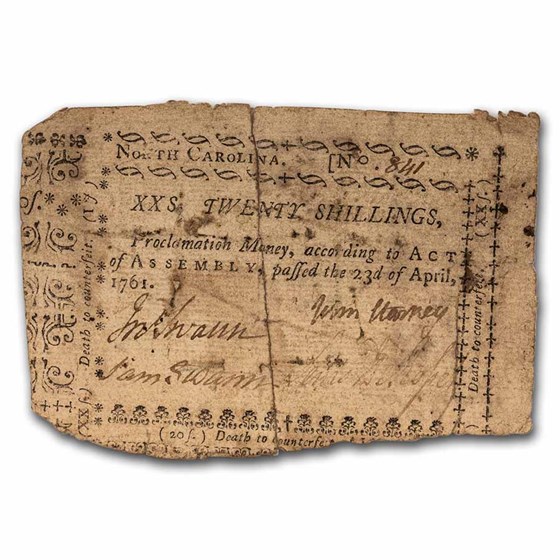 NORTH CAROLINA. [No. 841
XXS. TWENTY SHILLINGS,
Proclamation Money, according to ACT
of ASSEMBLY, passed the 23d of April,
1761.
Jno Swann
Sam Swann
(20ſ.) Death to counterfe
Death to counterfeit.
(XXſ.)
Death to counterfeit.
(XXſ.)